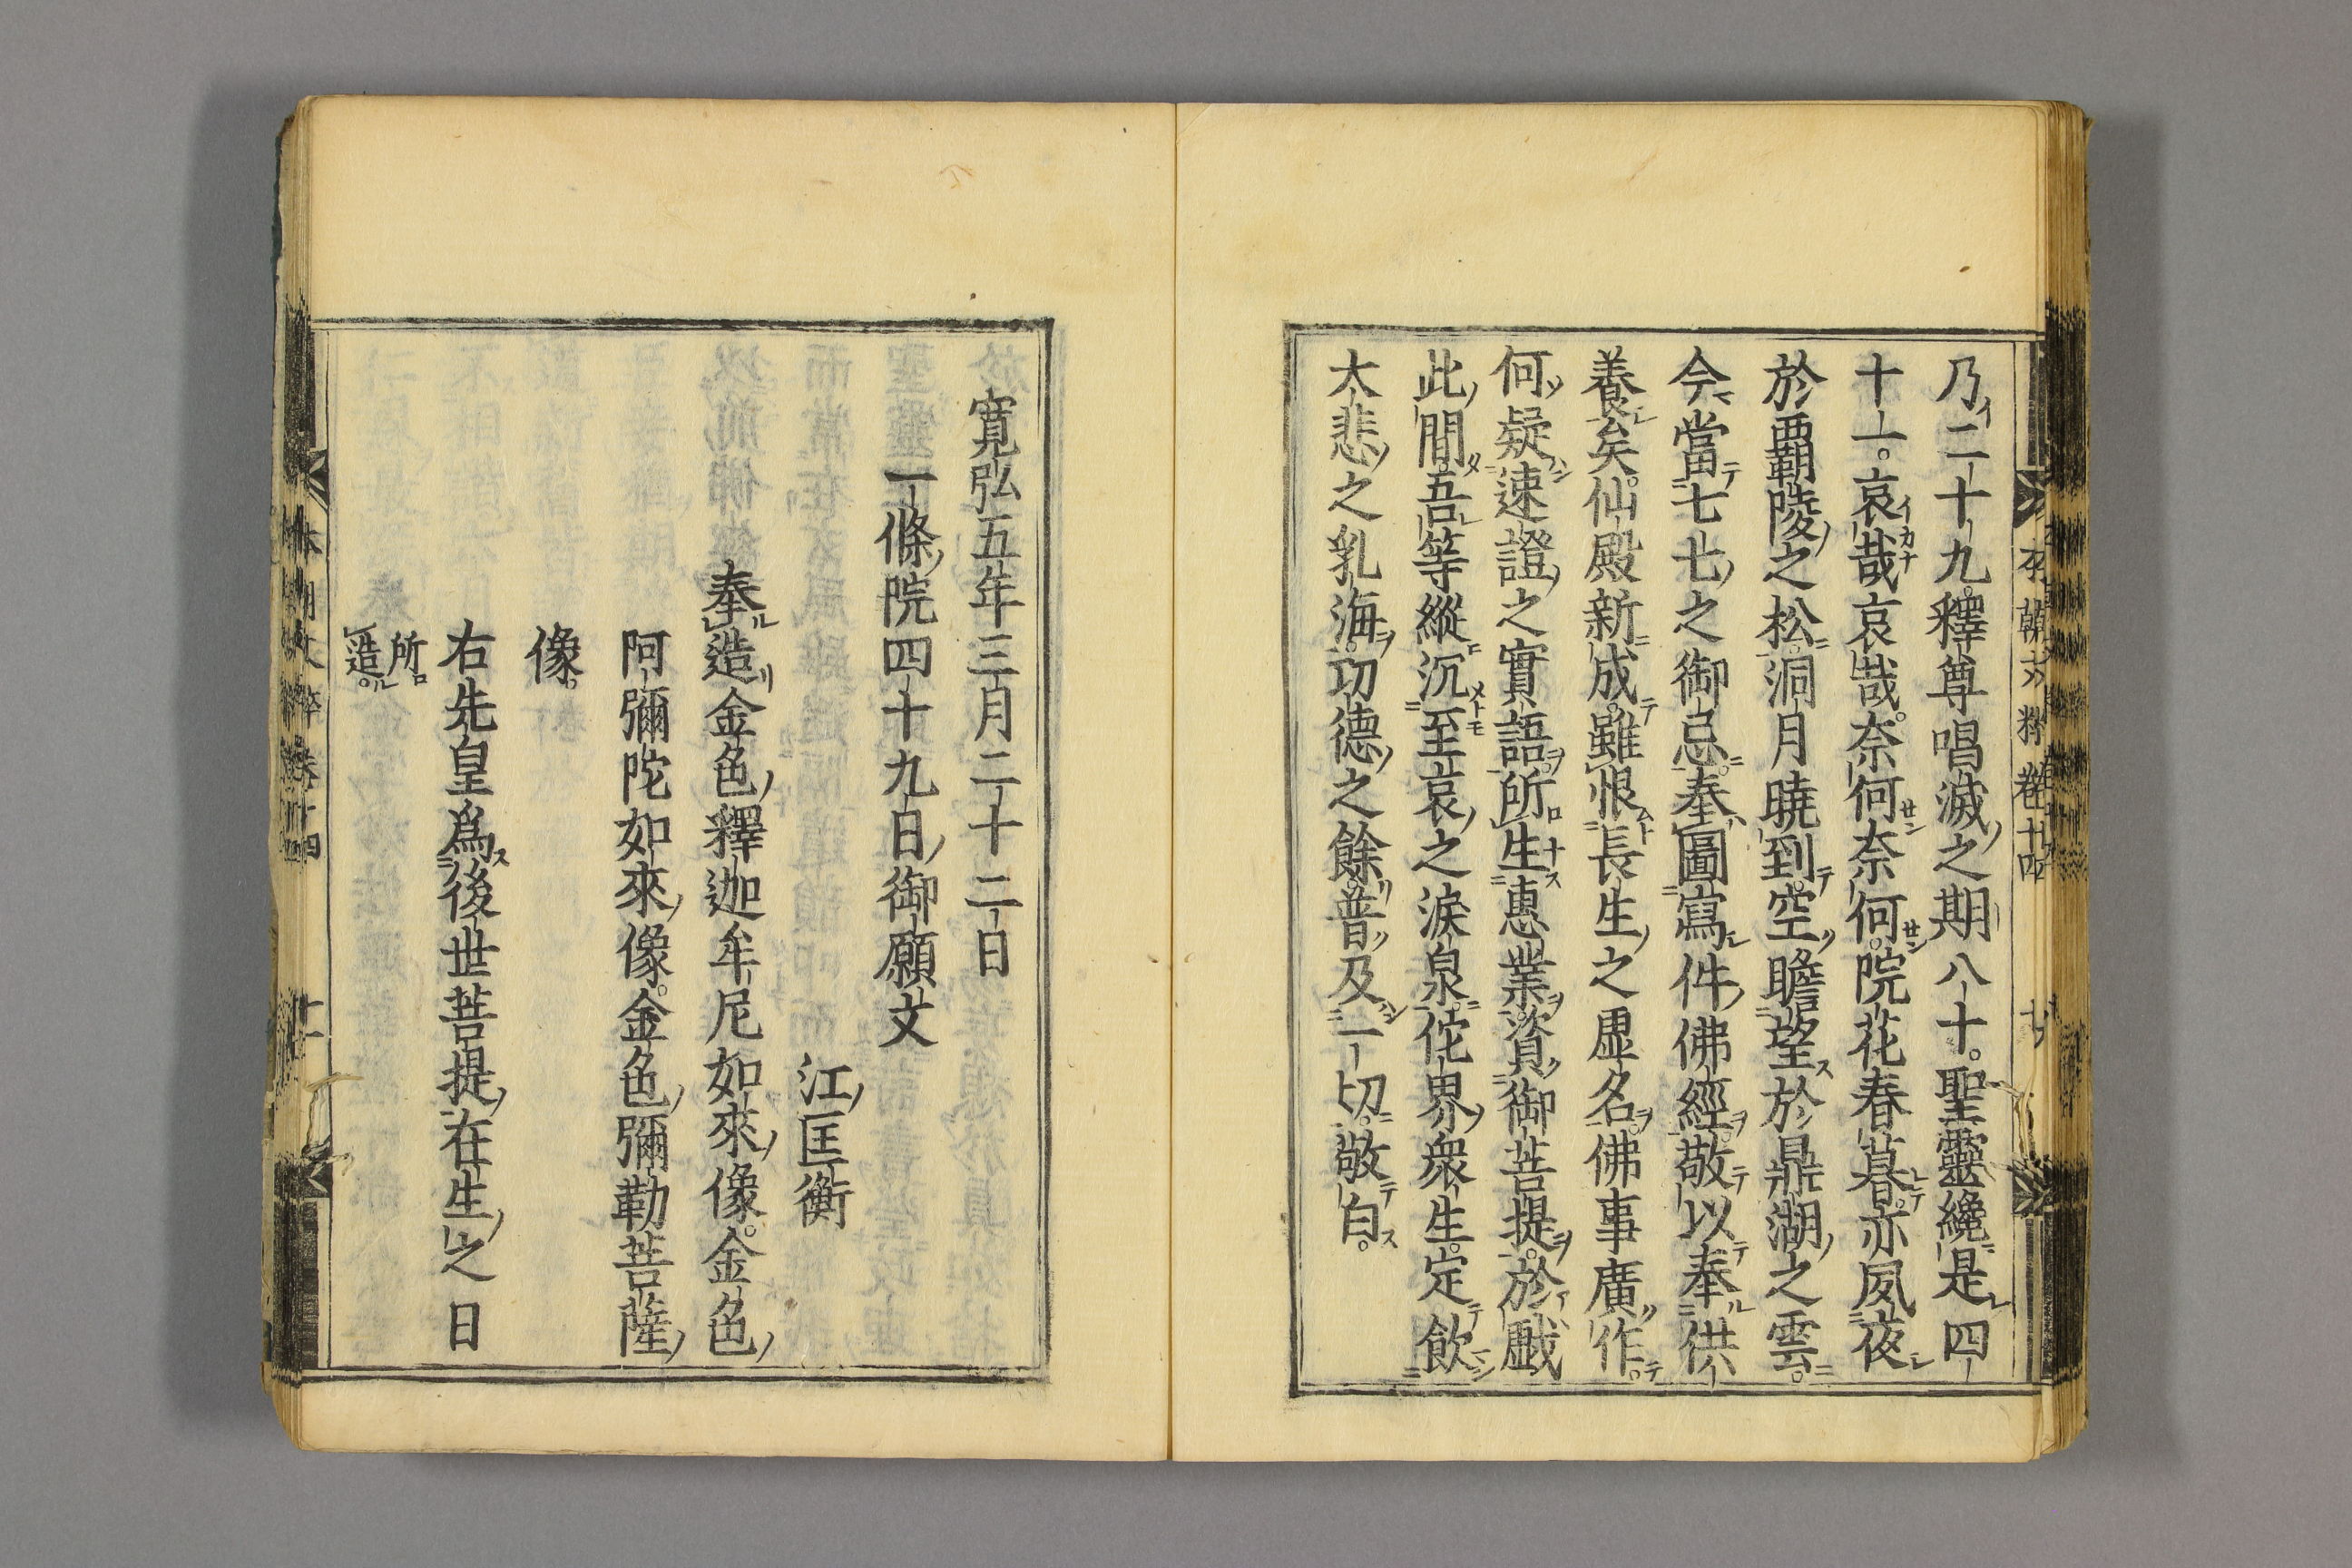 乃二十九釋尊唱滅之期八十。聖靈纔是四
十一。哀哉哀哉。奈何奈何。院花春暮。亦夙夜
於覇陵之松。洞月曉到。空瞻望於鼎湖之雲。
今當七七之御忌。奉圖寫件佛經。敬以奉供
養矣。仙殿新成。雖恨長生之虛名。佛事廣作。
何疑速證之實語。所生惠業。資御菩提。於戲
此間吾等縱沉至哀之淚泉。侘界衆生。定飮
大悲之乳海。功德之餘。普及一切。敬白。
寛弘五年三月二十二日
一條院四十九日御願文
江匡衡
奉造金色釋迦牟尼如來像。金色
阿彌陀如來像。金色彌勒菩薩
像。
右先皇爲後世菩提。在生之日
所
造。
本朝文粹卷十四